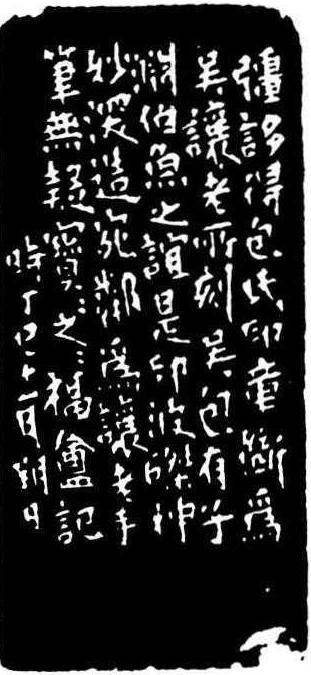 彊誃得包氏印章斷為
吳讓老所刻吳包有子
淵伯魚之誼是印波磔神
妙深造宛鄰為讓老手
筆無疑寶〻之〻橘盦記
時丁巳十一月朔日